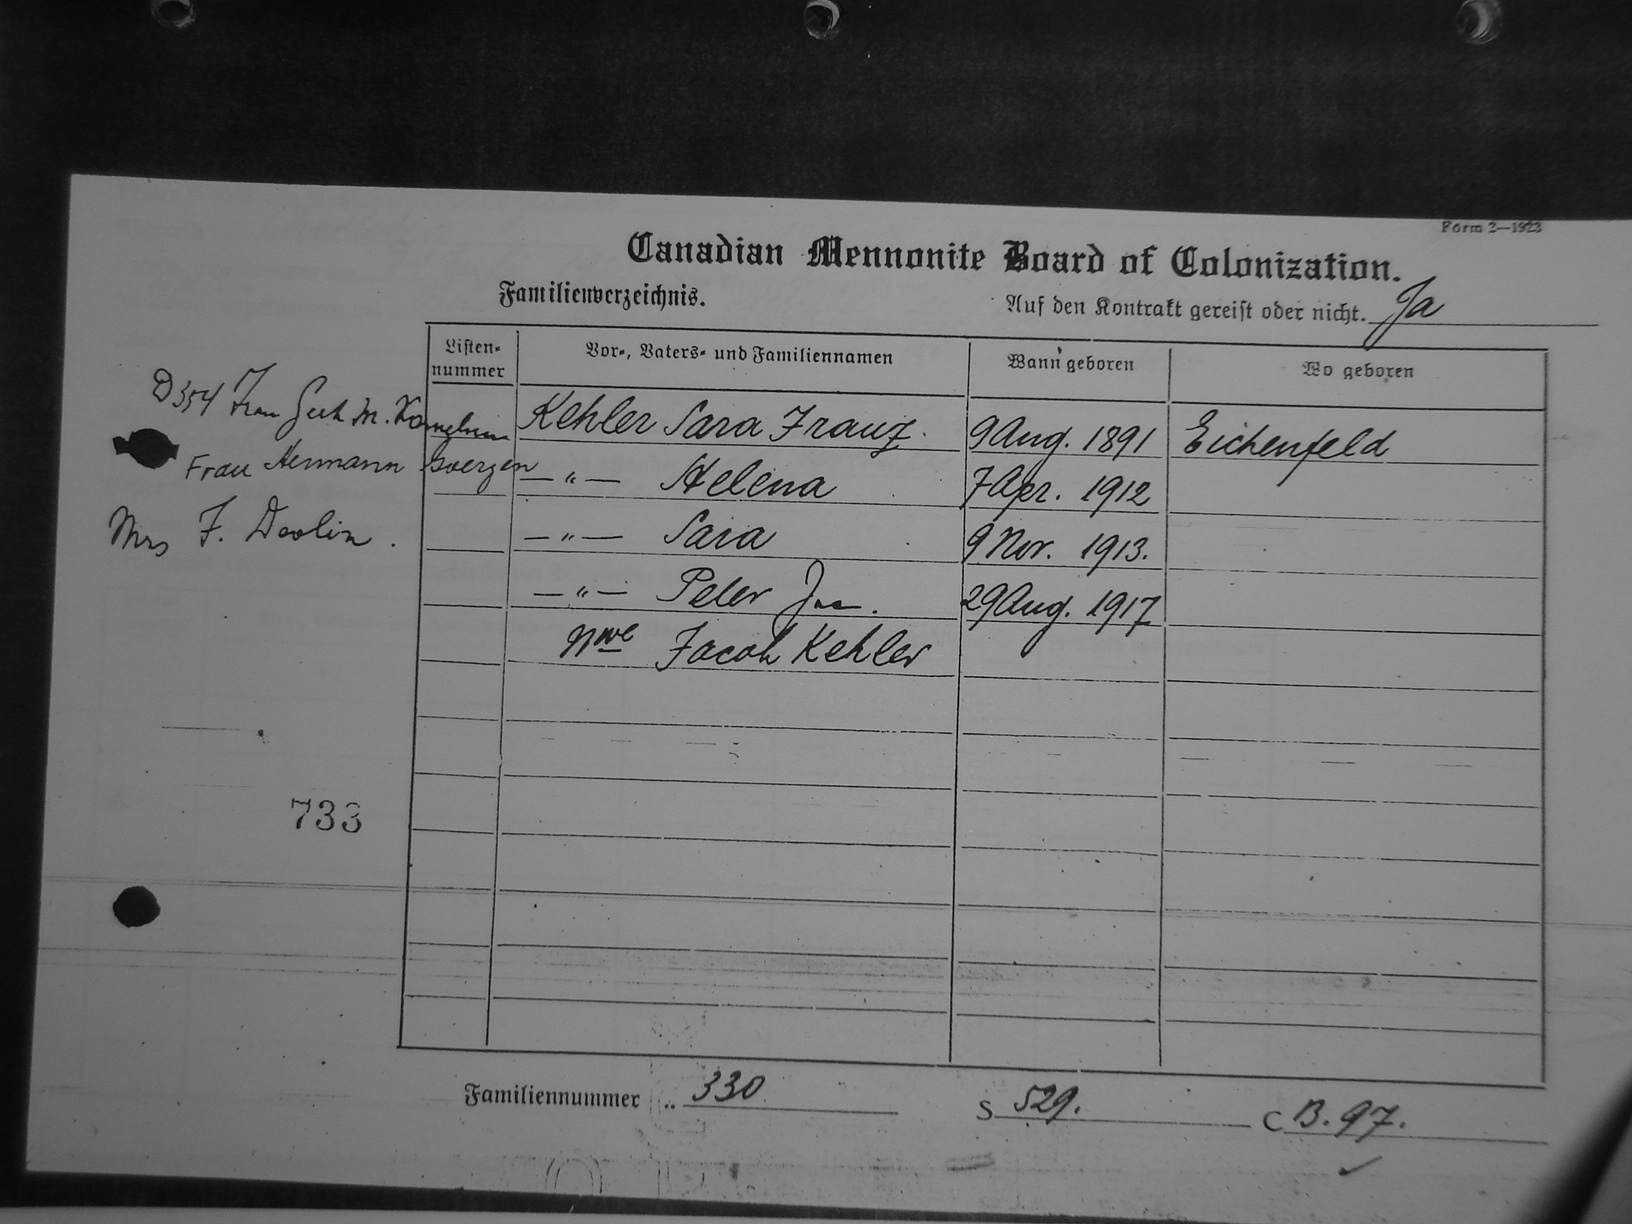 Form 2—1923
Canadian Mennonite Board of Colonization.
Familienverzeichnis.
Auf den Kontrakt gereist oder nicht. Ja
Listen-nummer
Vor-, Vaters- und Familiennamen
Wann geboren
Wo geboren
D354 Frau M.
Kehler Sara Franz. 9 Aug. 1891 Eichenfeld
Frau Hermann Goerzen
—"— Helena 7 Apr. 1912
Mrs F. Devlin.
—"— Sara 9 Nov. 1913.
—"— Peter 29 Aug. 1917
Jacob Kehler
733
Familiennummer .. 330
S 529.
C B. 97.